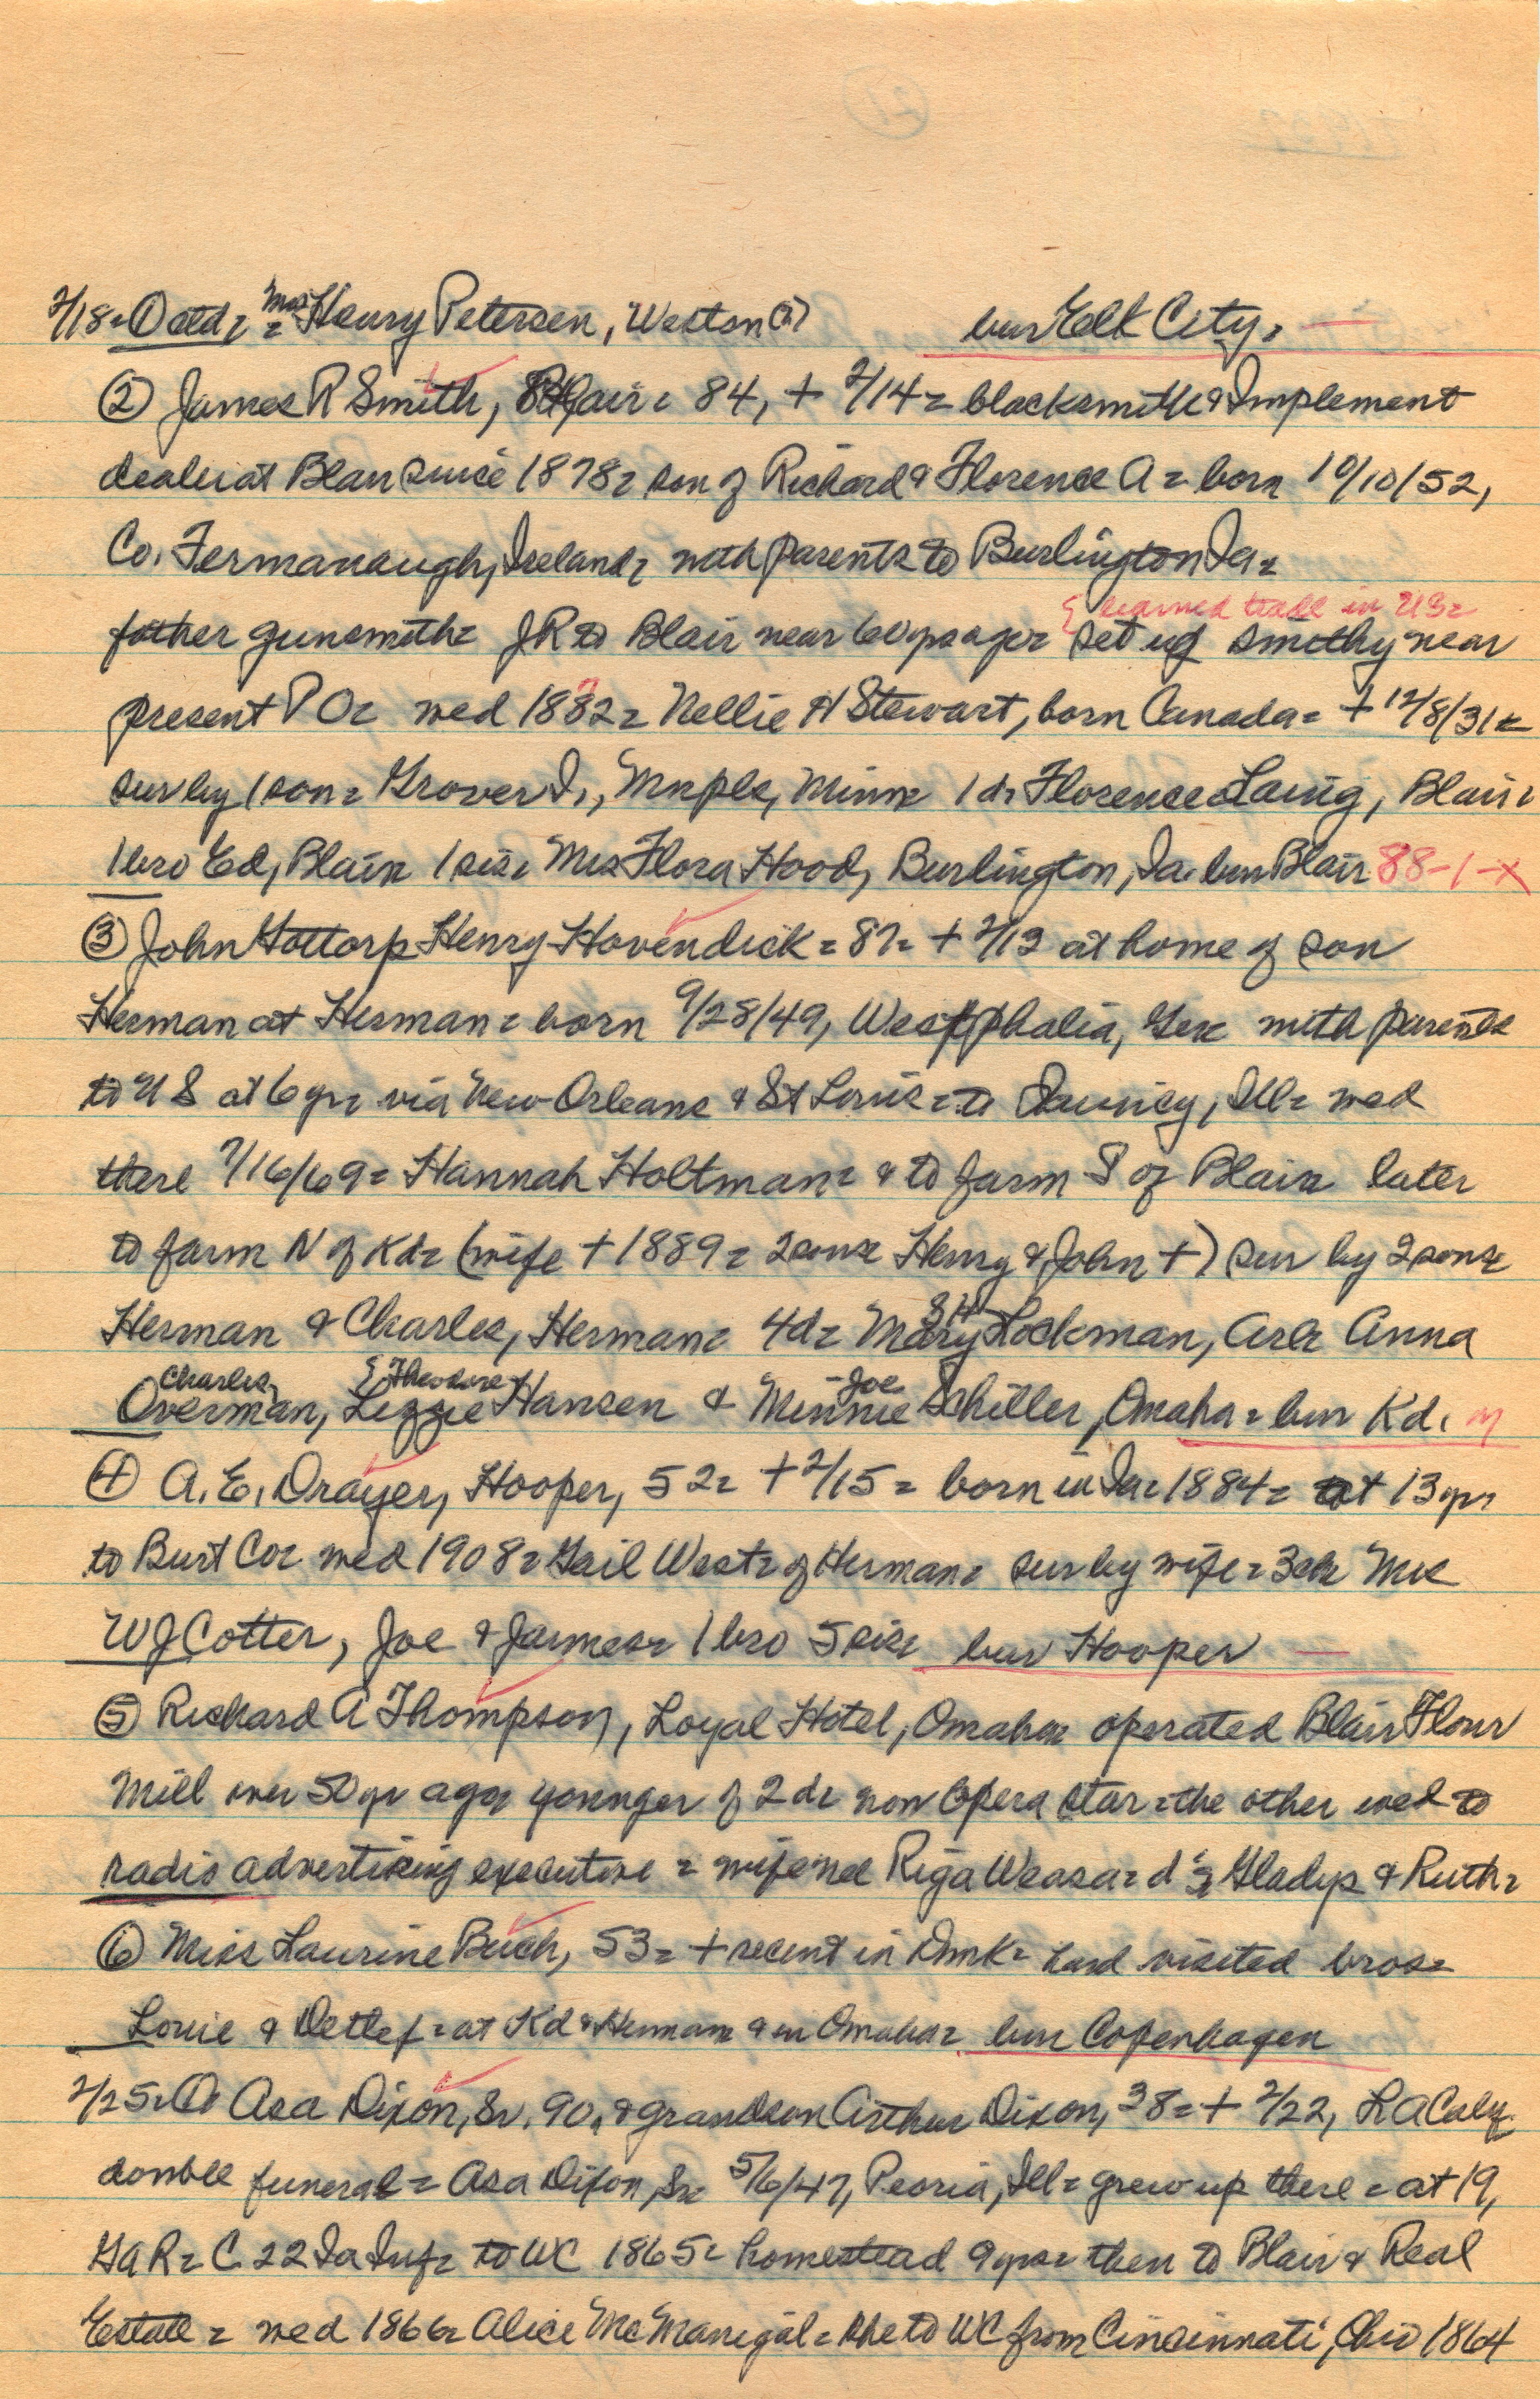 2/18 = ① old = Mrs Henry Petersen, Weston (?) bur Elk City.
② James R Smith, Blair = 84, + 2/14 = blacksmith & Implement
dealer at Blair since 1878 = son of Richard & Florence A = born 10/10/52,
Co. Fermanaugh, Ireland = with parents to Burlington Ia =
{ learned trade in US =
father gunsmith = JR to Blair near 60 yrs ago = set up smithy near
present P O = wed 1882 = Nellie H Stewart, born Canada = + 12/8/31 =
sur by 1 son = Grover I., Mnpls, Minn = 1 d = Florence Laing, Blair =
1 bro Ed, Blair = 1 sis = Mrs Flora Hood, Burlington, Ia. bur Blair 88-1-X
③ John Henry Hovendick = 87 = + 2/13 at home of son
Herman at Herman = born 9/28/49, Westphalia, Ger = with parents
to U S at 6 yr = via New Orleans & St Louis = to Quincy, Ill = wed
there 7/16/69 = Hannah Holtman = & to farm S of Blair = later
to farm N of Kd = (wife + 1889 = 2 sons = Henry & John +) sur by 2 sons =
Herman & Charles, Herman = 4 d = Mary Lockman, Arl = Anna
Charles { Theodore - Joe
Overman, Lizzie Hansen & Minnie Schiller, Omaha = bur Kd.
④ A. E. Drayer, Hooper, 52 = + 2/15 = born in Ia = 1884 = at 13 yr =
to Burt Co = wed 1908 = Gail West = of Herman = sur by wife = 3 ch = Mrs
W J Cotter, Joe & James = 1 bro 5 sis = bur Hooper
⑤ Richard A Thompson, Loyal Hotel, Omaha = operated Blair Flour
Mill over 50 yr ago = younger of 2 d = now Opera star = the other wed to
radio advertising executive = wife nee Riga Weasa = d's = Gladys & Ruth =
⑥ Miss Laurine Buch, 53 = + recent in Dmk = had visited bros =
Louie & Detlef = at Kd & Herman & in Omaha = bur Copenhagen
2/25 = ① Asa Dixon, Sr. 90, & grandson Arthur Dixon, 38 = + 2/22, L A Calif
double funeral = Asa Dixon, Sr = 5/6/47, Peoria, Ill = grew up there = at 19,
GAR = C 22 Ia Inf = to WC 1865 = homestead 9 yrs = then to Blair & Real
Estate = wed 1866 = Alice McManigal = she to WC from Cincinnati, Ohio 1864